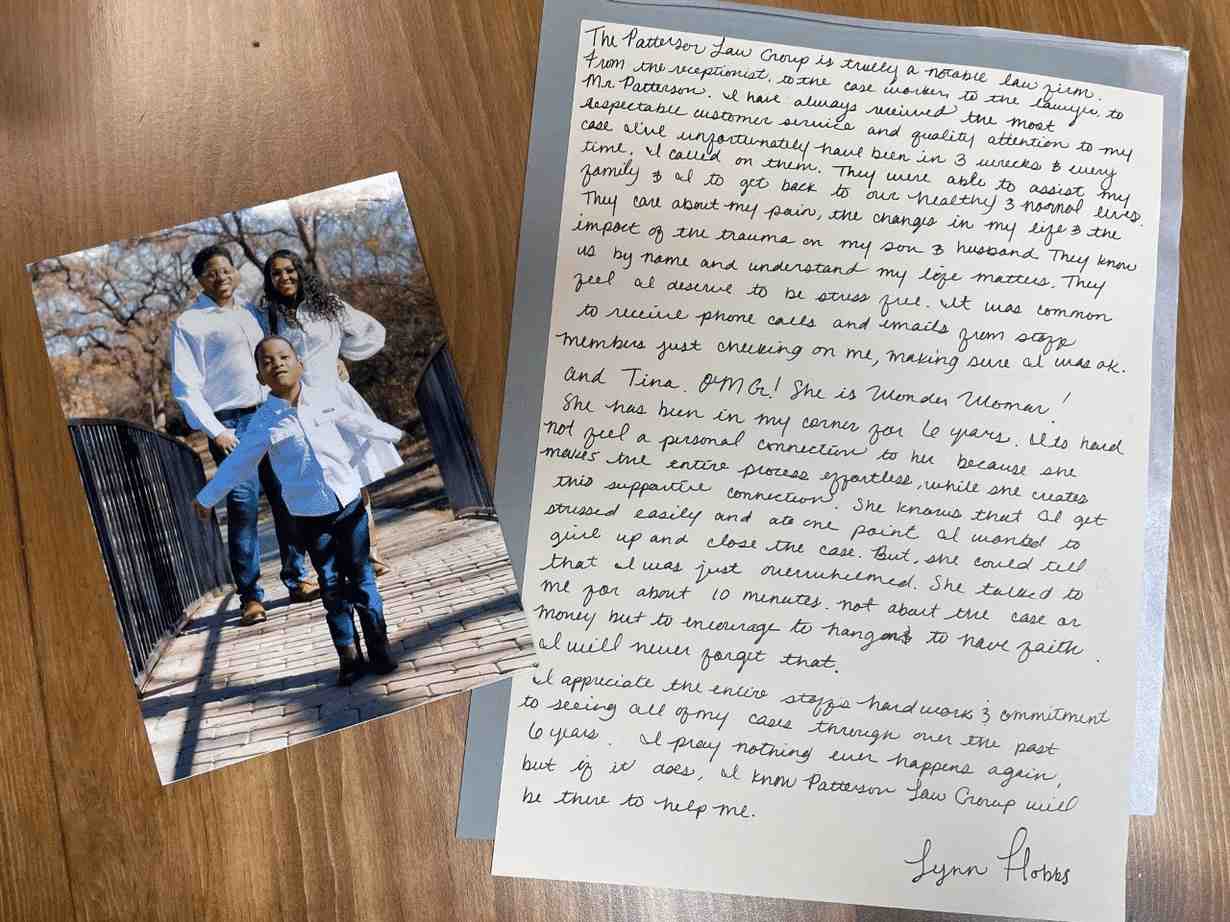 The Patterson Law Group is trully a notable law firm.
From the receptionist, to the case worker, to the lawyer, to
Mr. Patterson. I have always received the most
respectable customer service and quality attention to my
case I've unfortunately have been in 3 wrecks & every
time, I called on them. They were able to assist my
family & I to get back to our healthy & normal lives.
They care about my pain, the changes in my life & the
impact of the trauma on my son & husband They know
us by name and understand my life matters. They
feel I deserve to be stress free. It was common
to receive phone calls and emails from staff
members just checking on me, making sure I was ok.
And Tina. OMG! She is Wonder Woman!
She has been in my corner for 6 years. Its hard
not feel a personal connection to her because she
makes the entire process effortless, while she creates
this supportive connection. She knows that I get
stressed easily and at one point I wanted to
give up and close the case. But, she could tell
that I was just overwhelmed. She talked to
me for about 10 minutes. not about the case or
money but to encourage to hang on & to have faith.
I will never forget that.
I appreciate the entire staff's hard work & commitment
to seeing all of my cases through over the past
6 years. I pray nothing ever happens again,
but if it does, I know Patterson Law Group will
be there to help me.
Lynn Hobbs